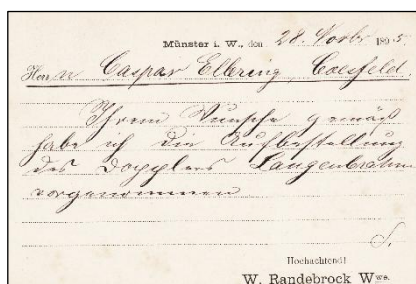 Münster i. W., den 28. Novbr. 1895.
Herrn Caspar Elbering, Coesfeld.
Ihrem Wunsche gemäß
habe ich die Aufbestellung
des Dopplers Langenbrahm
vorgenommen
Hochachtend!
W. Randebrock Wwe.